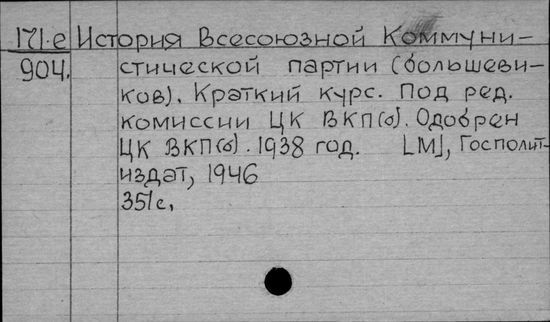 171.е История Всесоюзной Коммуни-
904. стической партии (большеви-
ков). Краткий курс. Под ред.
комиссии ЦК ВКП(б). Одобрен
ЦК ВКП(б). 1938 год. [М], Госполит-
издат, 1946
351с.